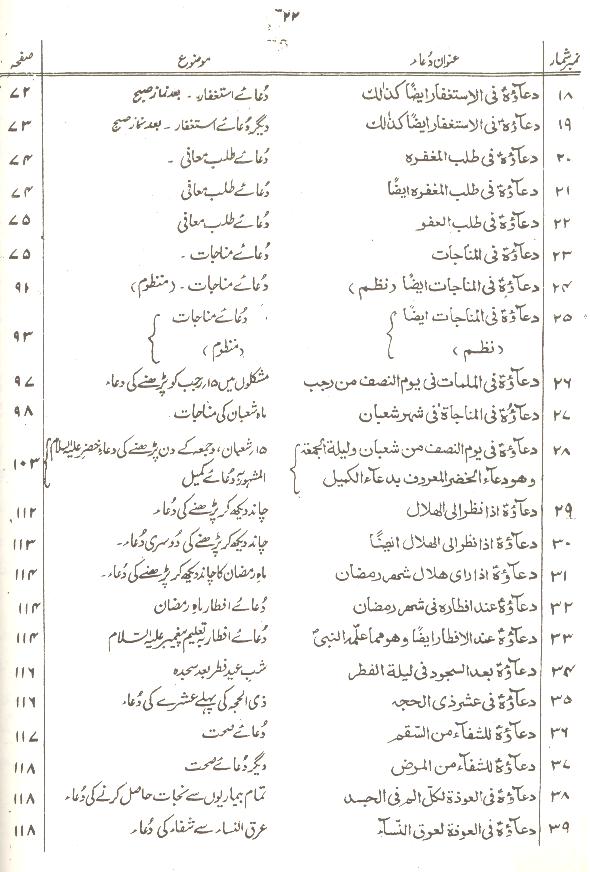 ۲۲
نمبر شمار عنوان دُعاء موضوع صفحہ
۱۸ دعاؤهٗ فی الاستغفار ایضًا کذالك دُعائے استغفار ۔ بعد نماز صبح ۷۲
۱۹ دعاؤهٗ فی الاستغفار ایضًا کذالك دیگر دُعائے استغفار ۔ بعد نماز صبح ۷۳
۲۰ دعاؤهٗ فی طلب المغفرہ دُعائے طلب معافی ۔ ۷۴
۲۱ دعاؤهٗ فی طلب المغفرہ ایضًا دُعائے طلب معافی ۷۴
۲۲ دعاؤهٗ فی طلب العفو دُعائے طلب معافی ۷۵
۲۳ دعاؤهٗ فی المناجات دُعائے مناجات ۔ ۷۵
۲۴ دعاؤهٗ فی المناجات ایضًا (نظم) دُعائے مناجات ۔ (منظوم) ۹۱
۲۵ دعاؤهٗ فی المناجات ایضًا دُعائے مناجات ۹۳
(نظم) (منظوم)
۲۶ دعاؤهٗ فی الملمات فی یوم النصف من رجب مشکلوں میں ۱۵ رجب کو پڑھنے کی دعاء ۹۷
۲۷ دعاؤهٗ فی المناجاة فی شهر شعبان ماہ شعبان کی مناجات ۹۸
۲۸ دعاؤهٗ فی یوم النصف من شعبان ولیلة الجمعة ۱۵ شعبان، و جمعہ کے دن پڑھنے کی دعاء خضر علیہ السلام ۱۰۳
وهو دعاء الخضر المعروف بدعاء الکمیل المشہور بہ دُعائے کمیل
۲۹ دعاؤهٗ اذا نظر الی الهلال چاند دیکھ کر پڑھنے کی دُعاء ۱۱۲
۳۰ دعاؤهٗ اذا نظر الی الهلال ایضًا چاند دیکھ کر پڑھنے کی دُوسری دُعاء۔ ۱۱۳
۳۱ دعاؤهٗ اذا رای هلال شهر رمضان ماہ رمضان کا چاند دیکھ کر پڑھنے کی دُعاء۔ ۱۱۴
۳۲ دعاؤهٗ عند افطارہ فی شهر رمضان دُعائے افطار ماہ رمضان ۱۱۴
۳۳ دعاؤهٗ عند الافطار ایضًا وهو مما علّمه النبیؐ دُعائے افطار بہ تعلیم پیغمبر علیہ السلام ۱۱۴
۳۴ دعاؤهٗ بعد السجود فی لیلة الفطر شب عید فطر بعد سجدہ ۱۱۶
۳۵ دعاؤهٗ فی عشر ذی الحجه ذی الحجہ کی پہلے عشرے کی دُعاء ۱۱۶
۳۶ دعاؤهٗ للشفاء من السّقم دُعائے صحت ۱۱۷
۳۷ دعاؤهٗ للشفاء من المرض دیگر دُعائے صحت ۱۱۸
۳۸ دعاؤهٗ فی العوذة لکلّ الم فی الجسد تمام بیماریوں سے نجات حاصل کرنے کی دُعاء ۱۱۸
۳۹ دعاؤهٗ فی العوذة لعرق النّساء عرق النساء سے شفاء کی دُعاء ۱۱۸